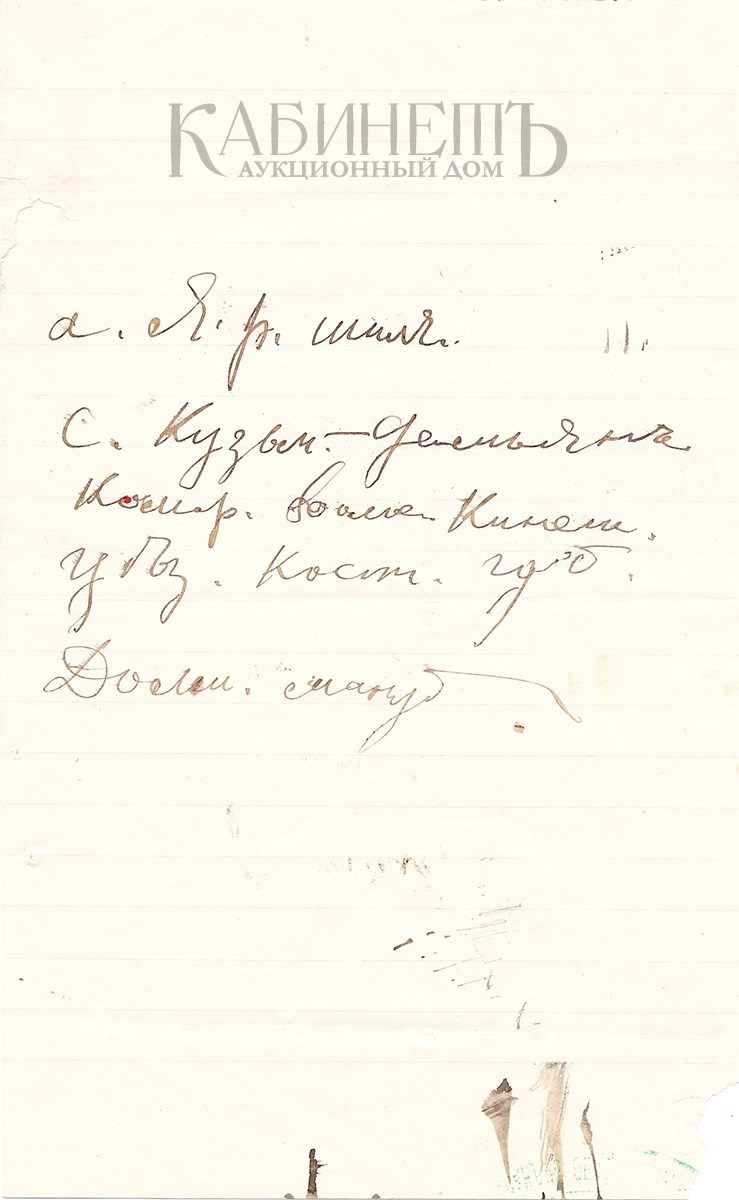 КАБИНЕТЪ
АУКЦИОННЫЙ ДОМ
а. Я. р.
с. Кузьм.-Демьянъ
Комр. волос. Кинеш.
Уѣз. Кост. губ.
мануф